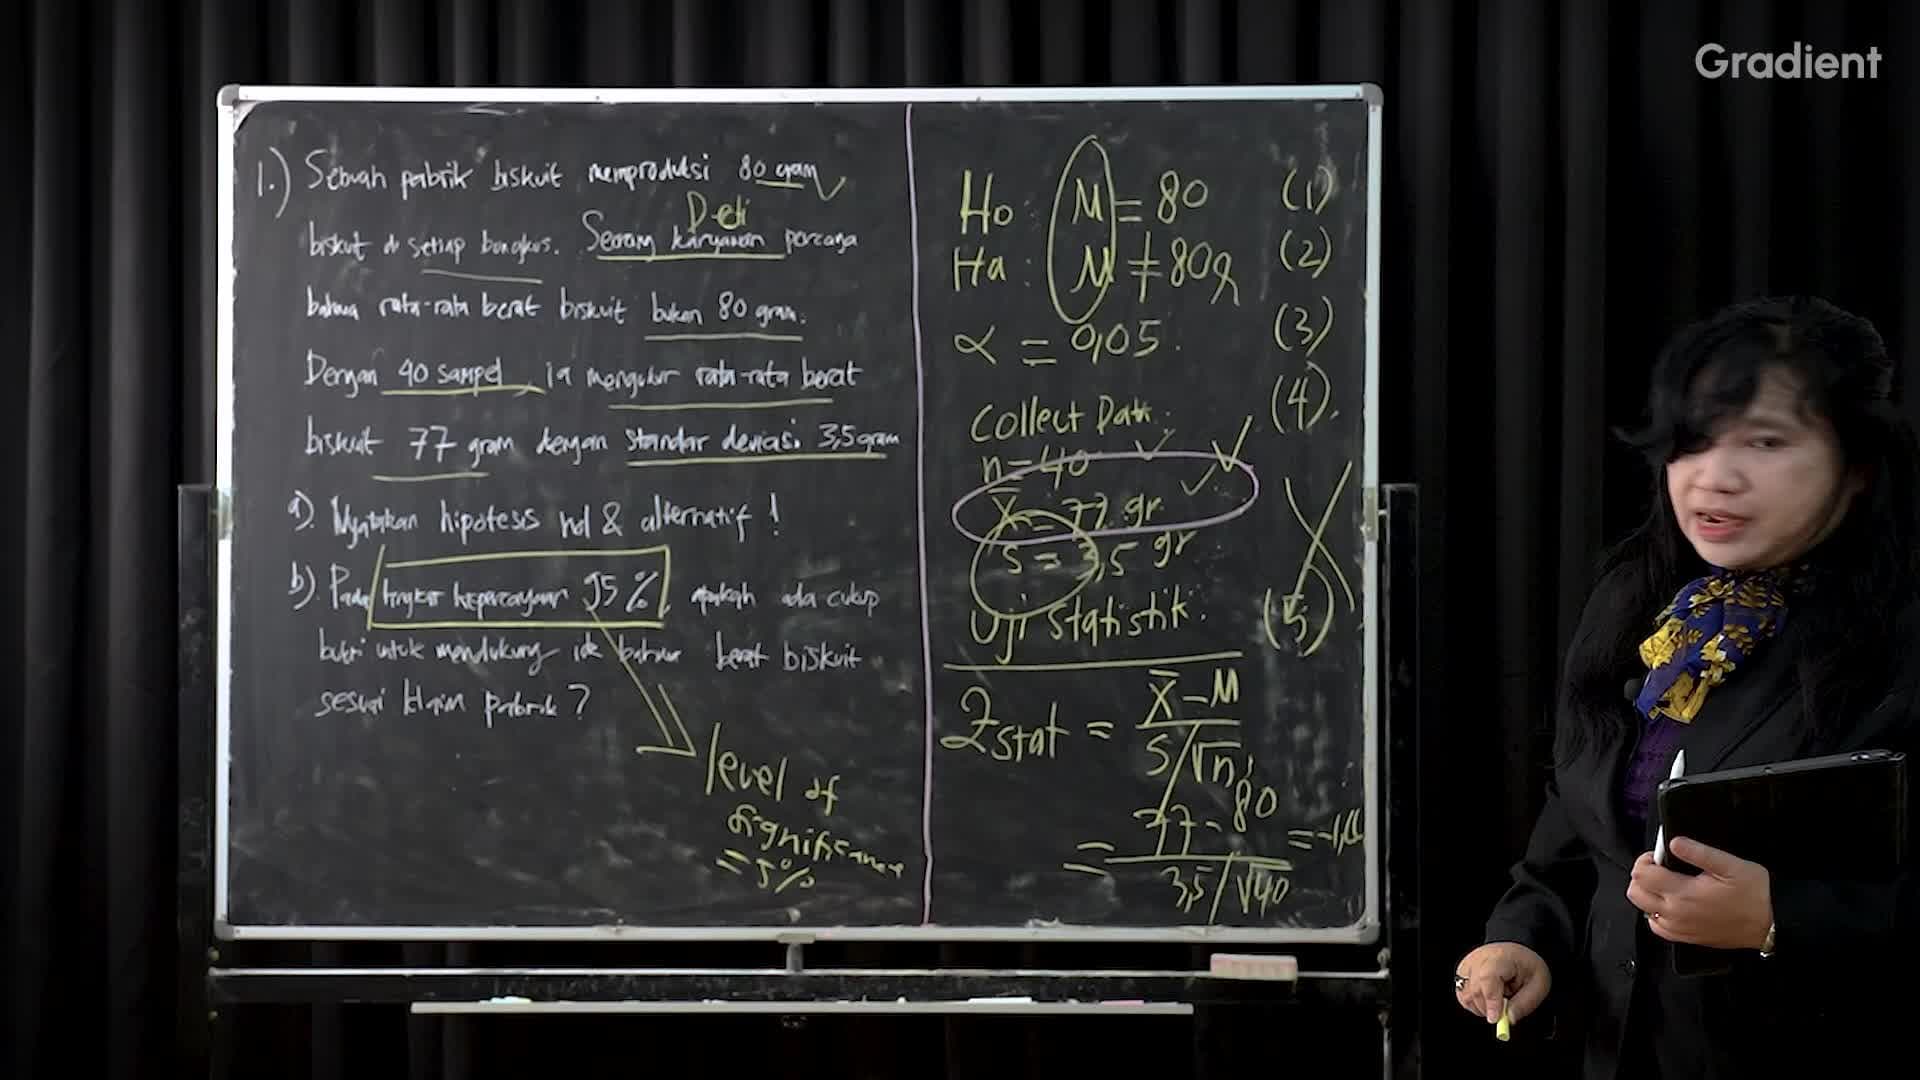 Gradient
1.) Sebuah pabrik biskuit memproduksi 80 gram
Deti
biskut di setiap bungkus. Seorang karyawan percaya
bahwa rata-rata berat biskuit bukan 80 gram.
Dengan 40 sampel, ia mengukur rata-rata berat
biskuit 77 gram dengan standar deviasi 3,5 gram
a). Nyatakan hipotesis nol & alternatif !
b). Pada tingkat kepercayaan 95%, apakah ada cukup
bukti untuk mendukung ide bahwa berat biskuit
sesuai klaim pabrik ?
level of
significance
= 5%
Ho: M = 80 (1)
Ha: M ≠ 80g (2)
α = 0,05. (3)
Collect Data: (4).
n = 40
x̄ = 77 gr.
s = 3,5 gr
Uji Statistik. (5)
Zstat = x̄ - M
S/√n
= 77 - 80
3,5/√40